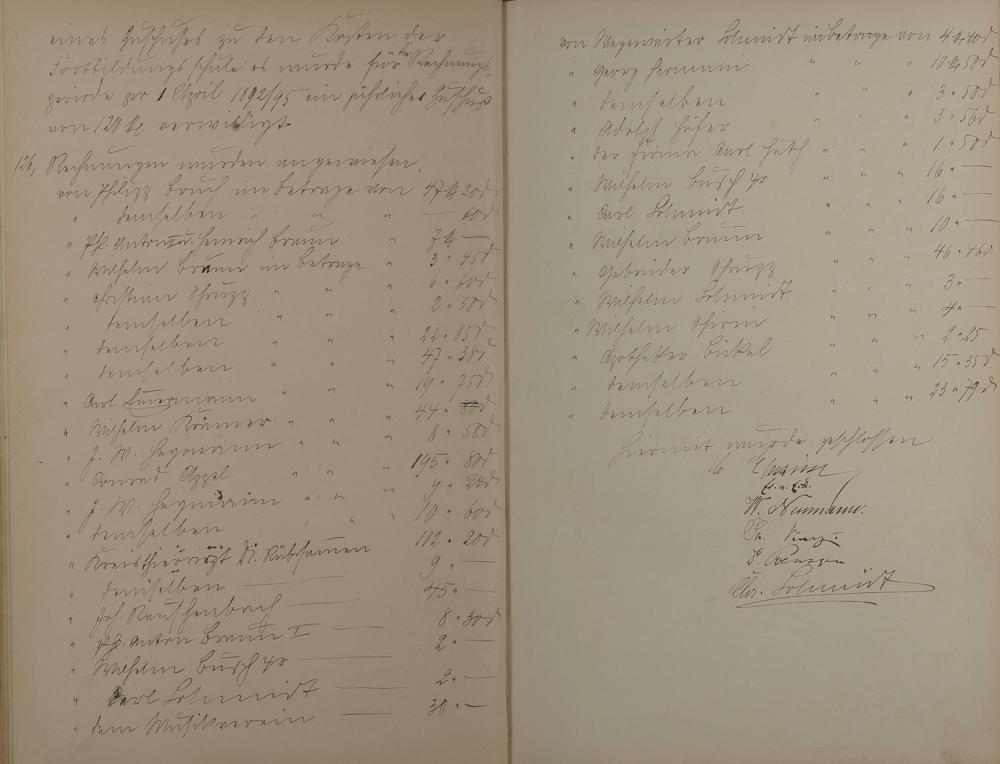 eines Zuschußes zu den Kosten der
Fortbildungsschule: es wurde für die Rechnungs-
periode pro 1 April 1892/95 ein jährlicher Zuschuß
von 120 M verwilligt
126, Rechnungen wurden angewiesen.
von Philipp Bruch im Betrage von 47 M 20 d
" demselben " " " — 60 d
" Ph. Anton u. Heinrich Braun " 7 M —
" Wilhelm Braun im Betrage " 3 " 45 d
" Christian Strupp " " " 6 " 60 d
" demselben " 2 " 50 d
" demselben " " " 22 " 85 d
" demselben " " " 47 " 38 d
" Carl " " 19 " 75 d
" Wilhelm Krämer " " " 44 "
" J. W. Heymann " " " 8 " 58 d
" Conrad Appel " " " 195 " 80 d
" J. W. Heymann " " " 9 " 24 d
" demselben " " " 10 " 60 d
" Kreisthierarzt Dr. Rübsamen 112 " 20 d
" demselben — 9 " —
" Joh. Rauschenbach — 45 " —
" Ph. Anton Braun I — 8 " 30 d
" Wilhelm Busch jr — 2 " —
" Carl Schmidt — 2 " —
" dem Musikverein — 30 " —
von Wegewärter Schmidt im Betrage von 4 M 40 d
" Georg Hermann " " " 10 M 50 d
" demselben " " " 3 " 50 d
" Adolph Höfer " " " 3 " 56 d
" der Firma Carl Huth " " " 1 " 50 d
" Wilhelm Busch jr " " " 16 " —
" Carl Schmidt " " " 16 " —
" Wilhelm Braun " " " 10 " —
" Gebrüder Strupp " " " 46 " 46 d
" Wilhelm Schmidt " " " 3 " —
" Wilhelm " " " 4 " —
" Apotheker Bickel " " " 2 " 25
" demselben " " " 15 " 35 d
" demselben " " " 23 " 79 d
Hiermit wurde geschlossen
W. Neumann.
Chr. Schmidt